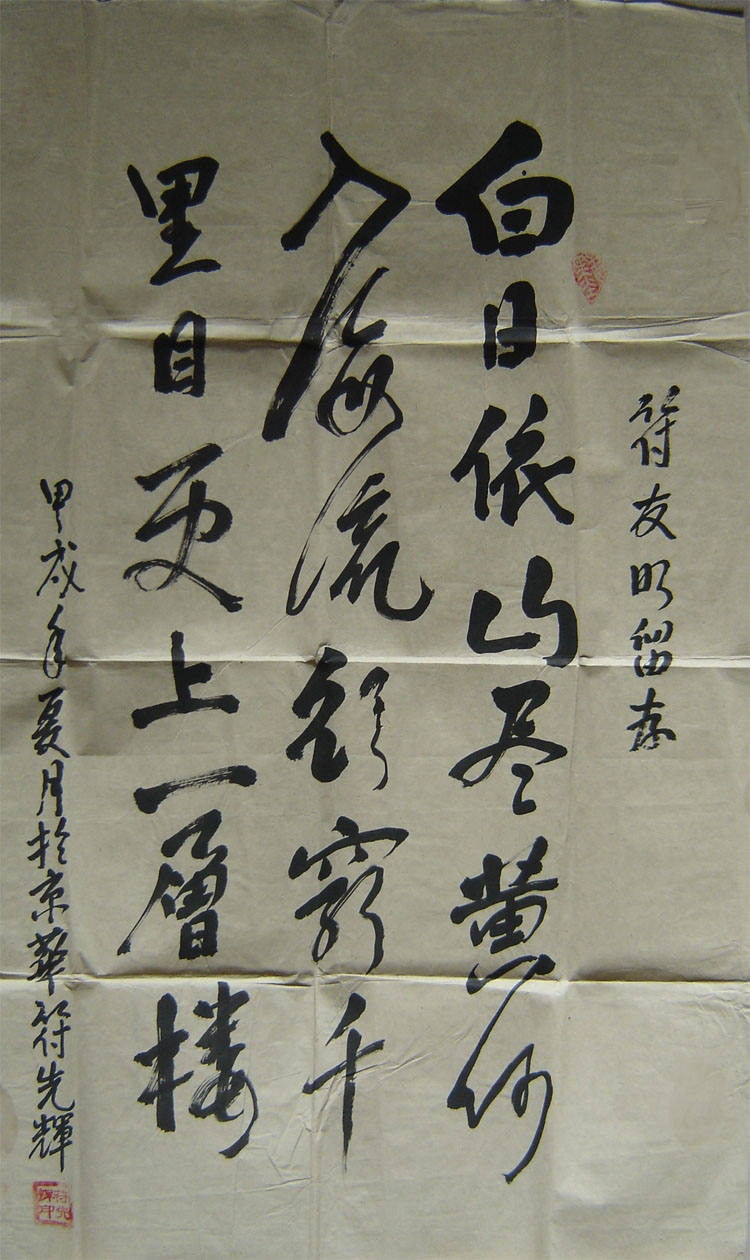 符友明留存
白日依山尽黄河
入海流欲窮千
里目更上一層楼
甲戌年夏月於京華符先輝